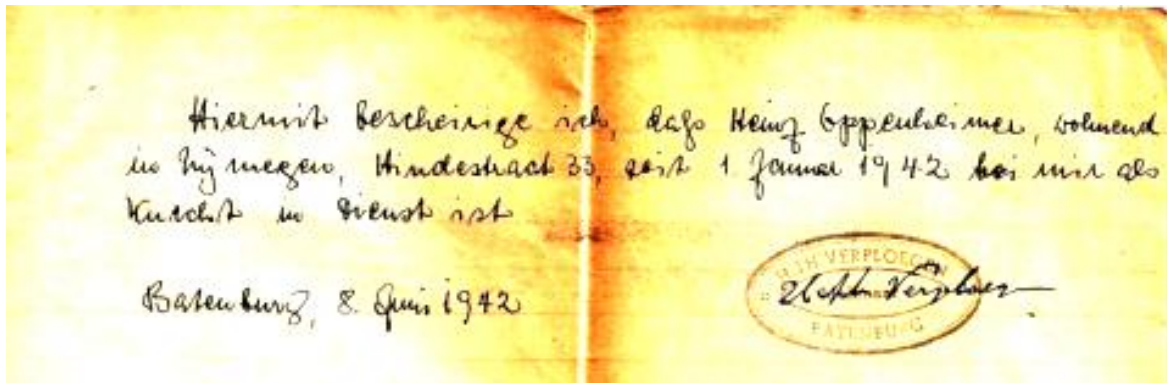 Hiermit bescheinige ich, daß Heinz Oppenheimer, wohnend
in Nijmegen, Hindestraat 33, seit 1. Januar 1942 bei mir als
Knecht in Dienst ist
Batenburg, 8. Juni 1942
VERPLOEGEN
BATENBURG